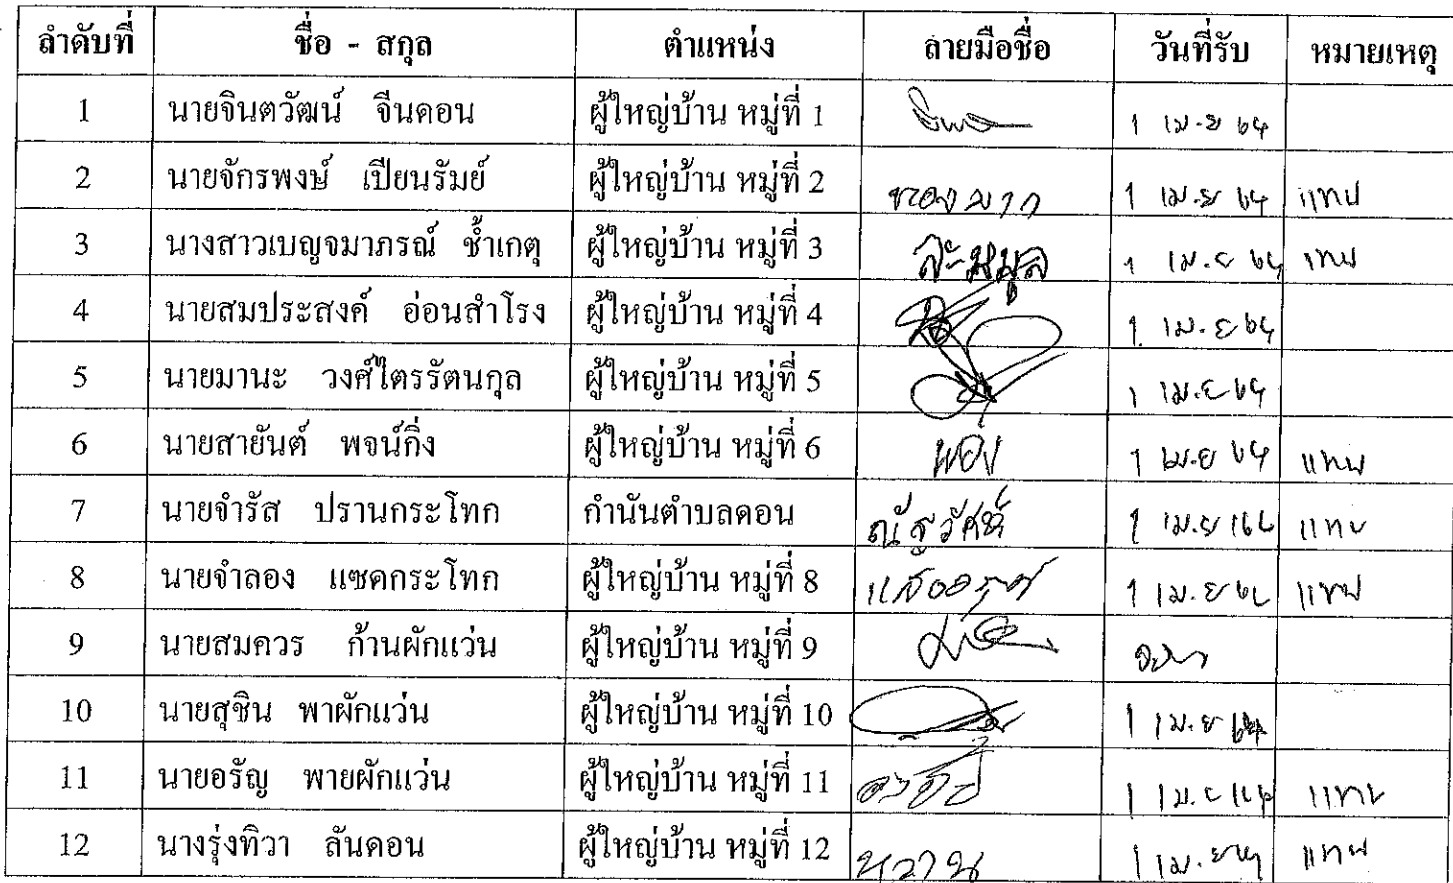 ลำดับที่ ชื่อ - สกุล ตำแหน่ง ลายมือชื่อ วันที่รับ หมายเหตุ
1 นายจินตวัฒน์ จีนดอน ผู้ใหญ่บ้าน หมู่ที่ 1 1 เม.ย 64
2 นายจักรพงษ์ เปียนรัมย์ ผู้ใหญ่บ้าน หมู่ที่ 2 ทองมาก 1 เม.ย 64 แทน
3 นางสาวเบญจมาภรณ์ ช้ำเกตุ ผู้ใหญ่บ้าน หมู่ที่ 3 ละมมูล 1 เม.ย 64 แทน
4 นายสมประสงค์ อ่อนสำโรง ผู้ใหญ่บ้าน หมู่ที่ 4 1 เม.ย 64
5 นายมานะ วงศ์ไตรรัตนกุล ผู้ใหญ่บ้าน หมู่ที่ 5 1 เม.ย 64
6 นายสายันต์ พจน์กิ่ง ผู้ใหญ่บ้าน หมู่ที่ 6 1 เม.ย 64 แทน
7 นายจำรัส ปรานกระโทก กำนันตำบลดอน 1 เม.ย 64 แทน
8 นายจำลอง แซดกระโทก ผู้ใหญ่บ้าน หมู่ที่ 8 1 เม.ย 64 แทน
9 นายสมควร ก้านผักแว่น ผู้ใหญ่บ้าน หมู่ที่ 9
10 นายสุชิน พาผักแว่น ผู้ใหญ่บ้าน หมู่ที่ 10 1 เม.ย 64
11 นายอรัญ พายผักแว่น ผู้ใหญ่บ้าน หมู่ที่ 11 1 เม.ย 64 แทน
12 นางรุ่งทิวา ลันดอน ผู้ใหญ่บ้าน หมู่ที่ 12 หวาน 1 เม.ย 64 แทน